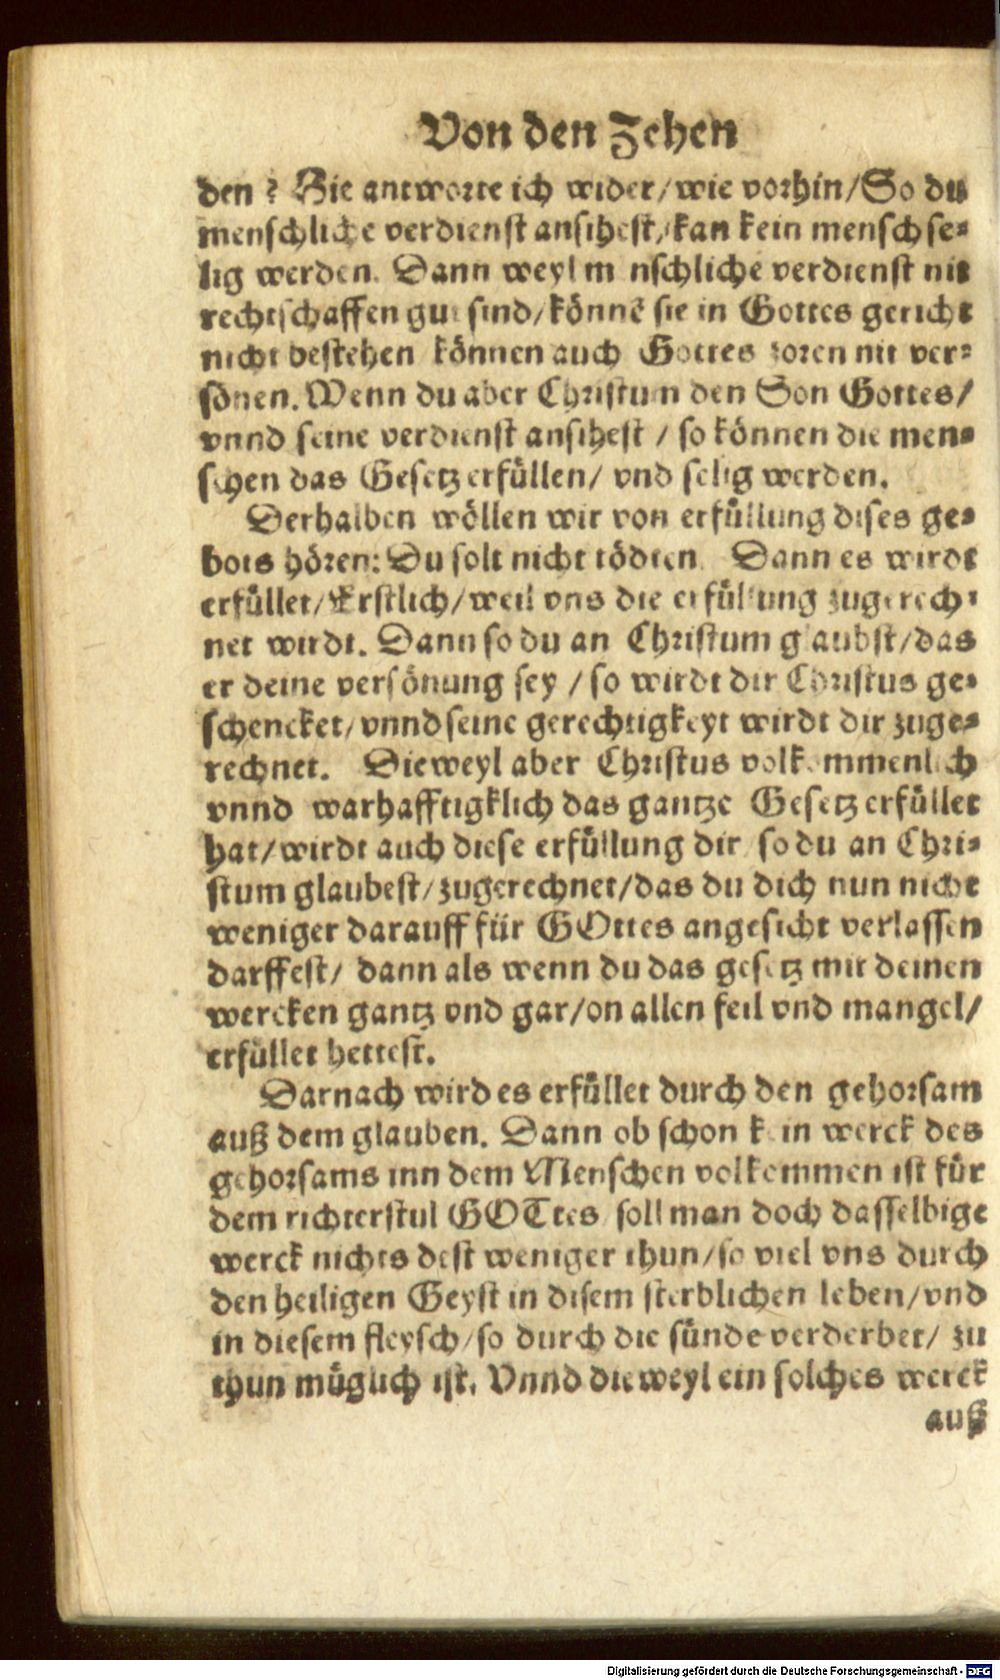 Von den Zehen
den? Hie antworte ich wider/wie vorhin/So du
menschliche verdienst ansihest/kan kein mensch se-
lig werden. Dann weyl menschliche verdienst nit
rechtschaffen gut sind/könnē sie in Gottes gericht
nicht bestehen können auch Gottes zoren nit ver-
sönen. Wenn du aber Christum den Son Gottes/
vnnd seine verdienst ansihest / so können die men-
schen das Gesetz erfüllen/ vnd selig werden.
Derhalben wöllen wir von erfüllung dises ge-
bots hören: Du solt nicht tödten. Dann es wirdt
erfüllet/Erstlich/weil vns die erfüllung zugerech-
net wirdt. Dann so du an Christum glaubst/das
er deine versönung sey / so wirdt dir Christus ge-
schencket/vnnd seine gerechtigkeyt wirdt dir zuge-
rechnet. Dieweyl aber Christus volkommenlich
vnnd warhafftigklich das gantze Gesetz erfüllet
hat/wirdt auch diese erfüllung dir so du an Chri-
stum glaubest/zugerechnet/das du dich nun nicht
weniger darauff für GOttes angesicht verlassen
darffest/ dann als wenn du das gesetz mit deinen
wercken gantz vnd gar/on allen feil vnd mangel/
erfüllet hettest.
Darnach wird es erfüllet durch den gehorsam
auß dem glauben. Dann ob schon kein werck des
gehorsams inn dem Menschen volkommen ist für
dem richterstul GOTtes/ soll man doch dasselbige
werck nichts dest weniger thun/so viel vns durch
den heiligen Geyst in disem sterblichen leben/vnd
in diesem fleysch/so durch die sünde verderbet/ zu
thun müglich ist. Vnnd dieweyl ein solches werck
auß
Digitalisierung gefördert durch die Deutsche Forschungsgemeinschaft - DFG